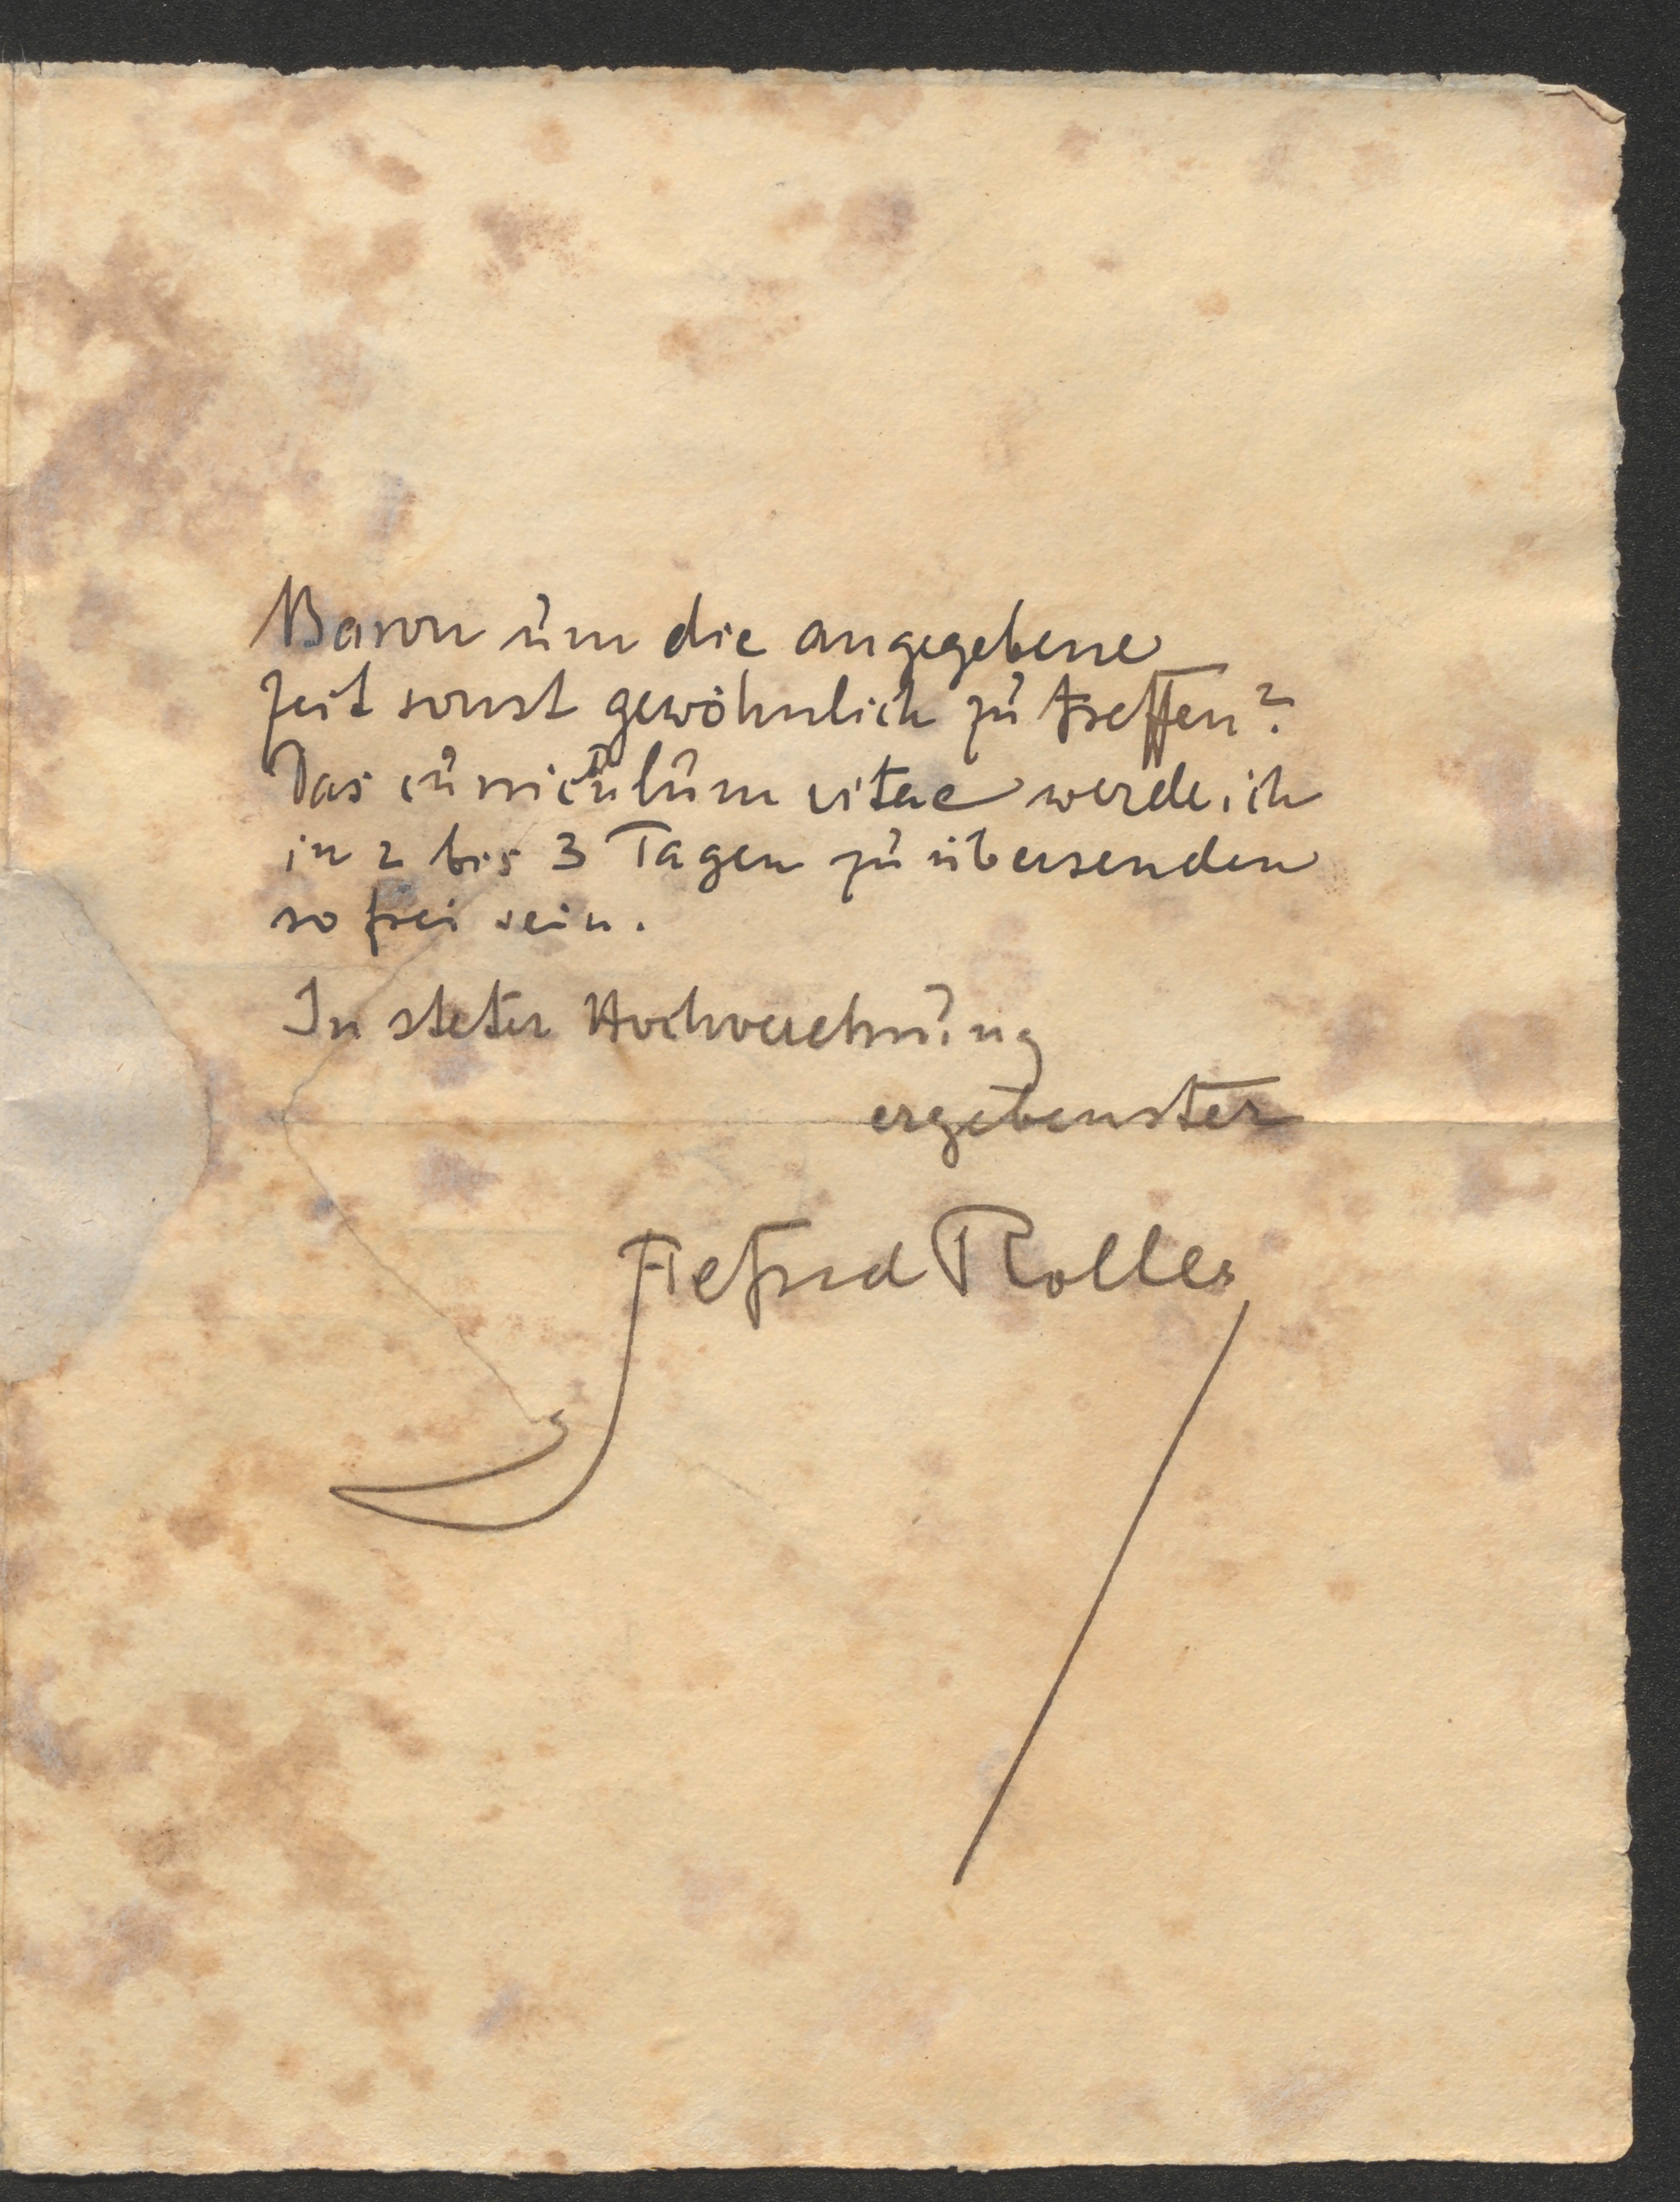 Baron um die angegebene
Zeit sonst gewöhnlich zu treffen?
Das curriculum vitae werde ich
in 2 bis 3 Tagen zu übersenden
so frei sein.
In steter Hochverehrung
ergebenster
Alfred Roller